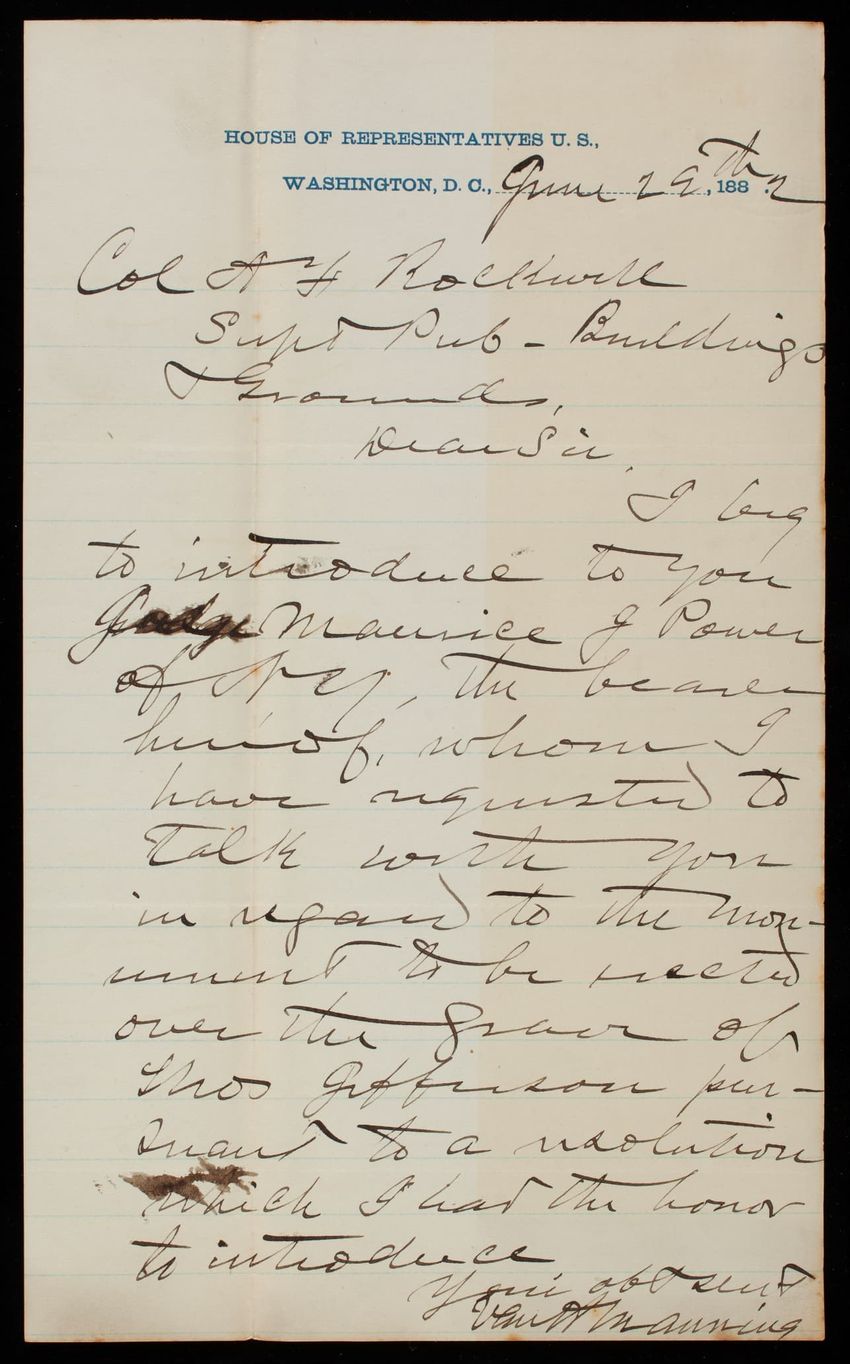 HOUSE OF REPRESENTATIVES U. S.,
WASHINGTON, D. C., June 29th, 188 .2
Col A F Rockwell
Supt Pub - Buildings
& Grounds,
Dear Sir,
I beg
to introduce to you
Judge Maurice J Power
of N Y, the bearer
hereof, whom I
have requested to
talk with you
in regard to the mon-
ument to be erected
over the grave of
Thos Jefferson pur-
suant to a resolution
which I had the honor
to introduce
Your obt servt
Van H Manning